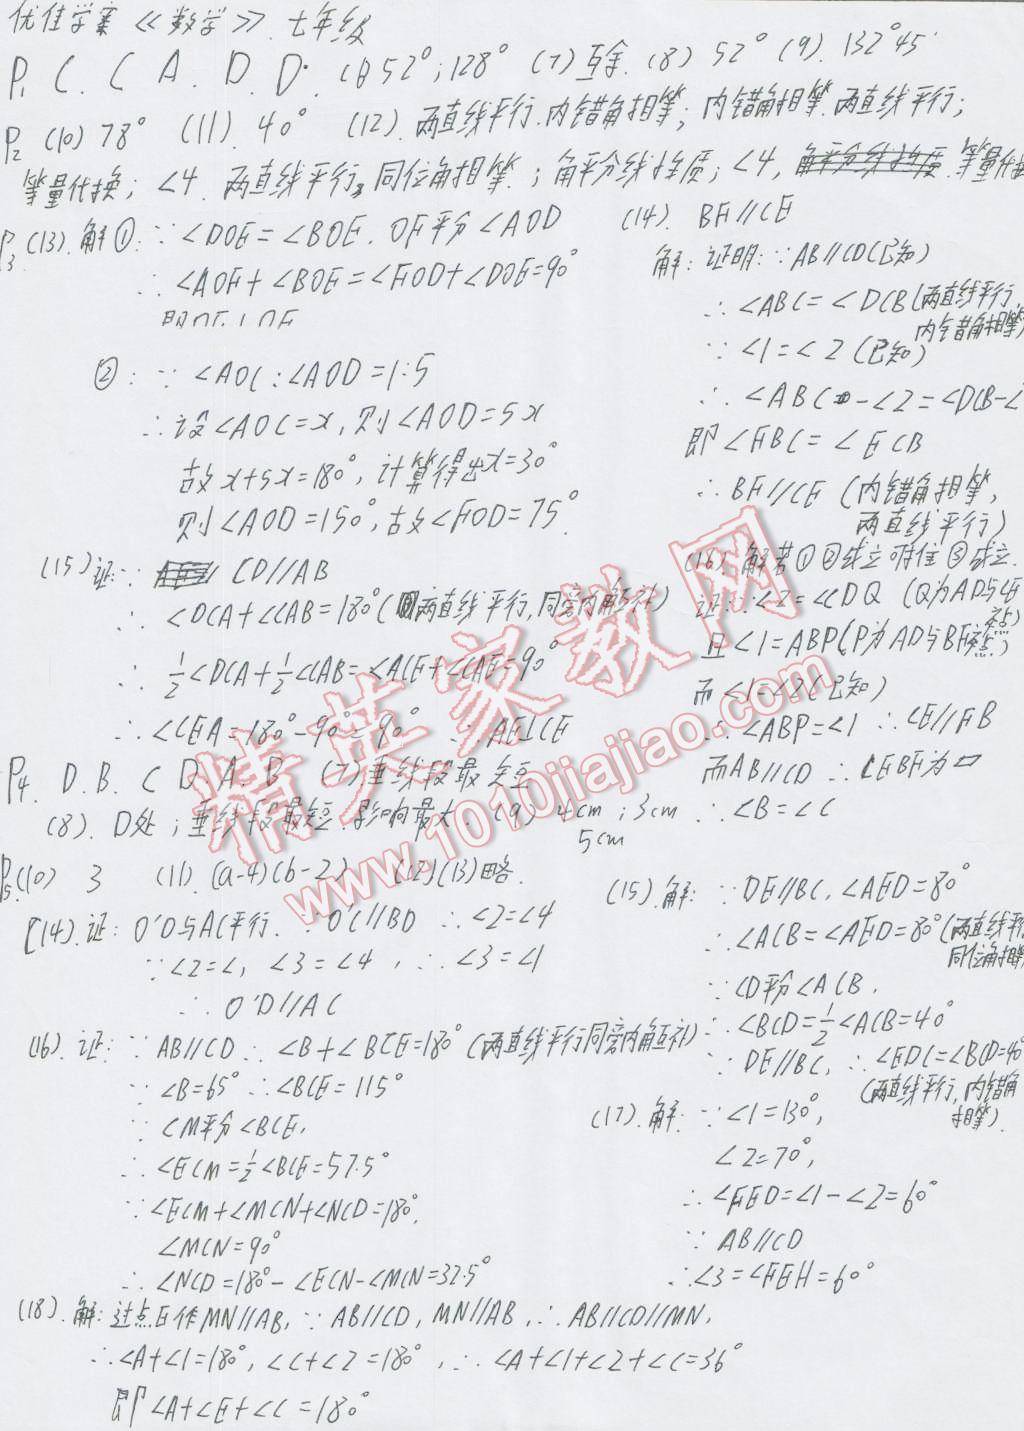 优佳学案《数学》七年级
P1 C. C A. D. D. (6) 52°; 128° (7) 互余. (8) 52° (9). 132°45′
P2 (10) 78° (11). 40° (12). 两直线平行.内错角相等; 内错角相等.两直线平行;
等量代换; ∠4. 两直线平行, 同位角相等.; 角平分线性质; ∠4, 等量代换
P3 (13). 解① ∵ ∠DOE=∠BOE. OF平分∠AOD
∴ ∠AOF+∠BOE=∠FOD+∠DOE=90°
②: ∵ ∠AOC:∠AOD=1:5
∴设∠AOC=x, 则∠AOD=5x
故x+5x=180°, 计算得出x=30°
则∠AOD=150°, 故∠FOD=75°
(14). BF∥CE
解: 证明: ∵AB∥CD(已知)
∴∠ABC=∠DCB(两直线平行,
内错角相等)
∵∠1=∠2(已知)
∴∠ABC-∠2=∠DCB-∠
即∠FBC=∠ECB
∴BF∥CE (内错角相等,
两直线平行)
(15) 证: ∵ CD∥AB
∴ ∠DCA+∠CAB=180°(两直线平行,同旁内角互补)
∴ ½∠DCA+½∠CAB=∠ACE+∠CAE=90°
∴∠CEA=180°-90°=90° ∴AE⊥CE
(16). 解若①②成立可住③成立.
证∵∠2=∠CDQ (Q为AD与CE
交点)
且∠1=ABP(P为AD与BF交点)
而∠1=∠2(已知)
∴∠ABP=∠1 ∴CE∥FB
而AB∥CD ∴CEBF为▱
∴∠B=∠C
P4. D. B. C D. A. B (7)垂线段最短
(8). D处; 垂线段最短.影响最大. (9) 4cm; 3cm
5cm
P5 (10) 3 (11). (a-4)(b-2) (12)(13)略.
(14).证: O′D与AC平行. ∵O′C∥BD ∴∠2=∠4
∵∠2=∠1 ∠3=∠4, ∴∠3=∠1
∴ O′D∥AC
(15).解: ∵DE∥BC, ∠AED=80°
∴∠ACB=∠AED=80°(两直线平行
同位角相等
∵CD平分∠ACB.
∴∠BCD=½∠ACB=40°
∵DE∥BC, ∴∠EDC=∠BCD=40°
(两直线平行, 内错角
相等).
(16). 证: ∵ AB∥CD ∴∠B+∠BCE=180°(两直线平行同旁内角互补)
∵∠B=65° ∴∠BCE=115°
∵ CM平分∠BCE,
∴∠ECM=½∠BCE=57.5°
∵∠ECM+∠MCN+∠NCD=180°,
∠MCN=90°
∴ ∠NCD=180°-∠ECN-∠MCN=32.5°
(17).解: ∵∠1=130°,
∠2=70°,
∴∠FED=∠1-∠2=60°
∵ AB∥CD
∴∠3=∠FEH=60°
(18).解: 过点E作MN∥AB, ∵AB∥CD, MN∥AB, ∴AB∥CD∥MN,
∴∠A+∠1=180°, ∠C+∠2=180°, ∴∠A+∠1+∠2+∠C=36°
即∠A+∠E+∠C=180°
精英家教网
www.1010jiajiao.com